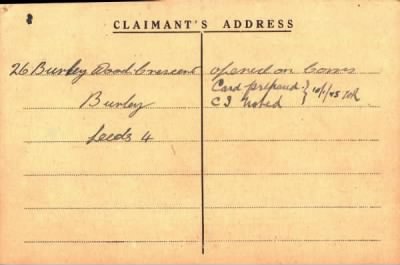 CLAIMANT'S ADDRESS
26 Burley Wood Crescent
Burley
Leeds 4
opened on Coms
Card prepared
CI noted